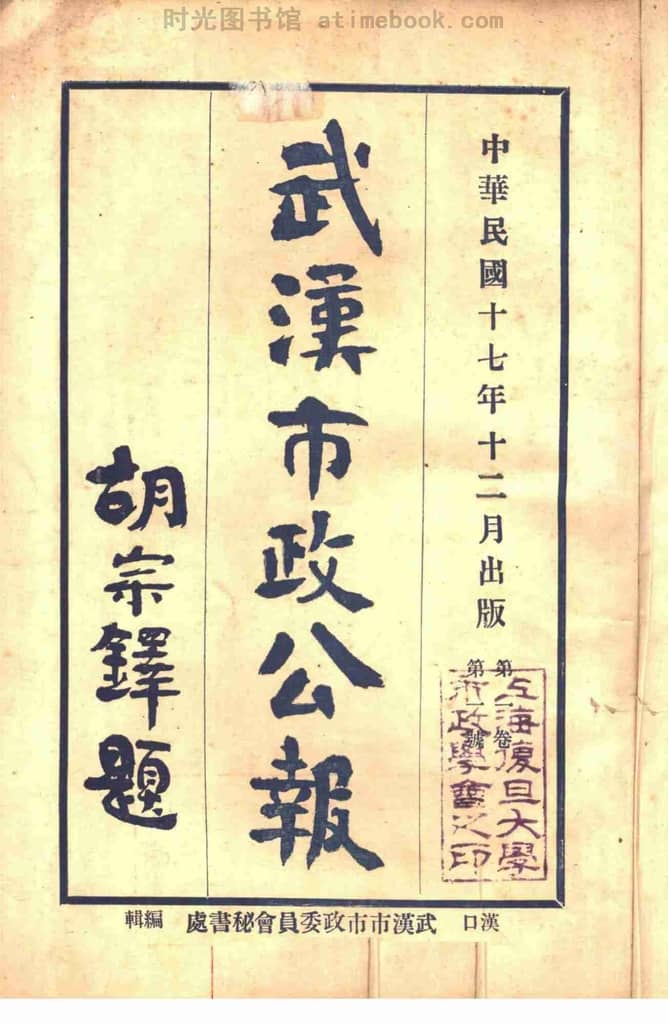 时光图书馆 atimebook.com
中華民國十七年十二月出版
第一卷
第一號
上海復旦大學
市政學會之印
武漢市政公報
胡宗鐸題
漢口 武漢市市政委員會秘書處 編輯